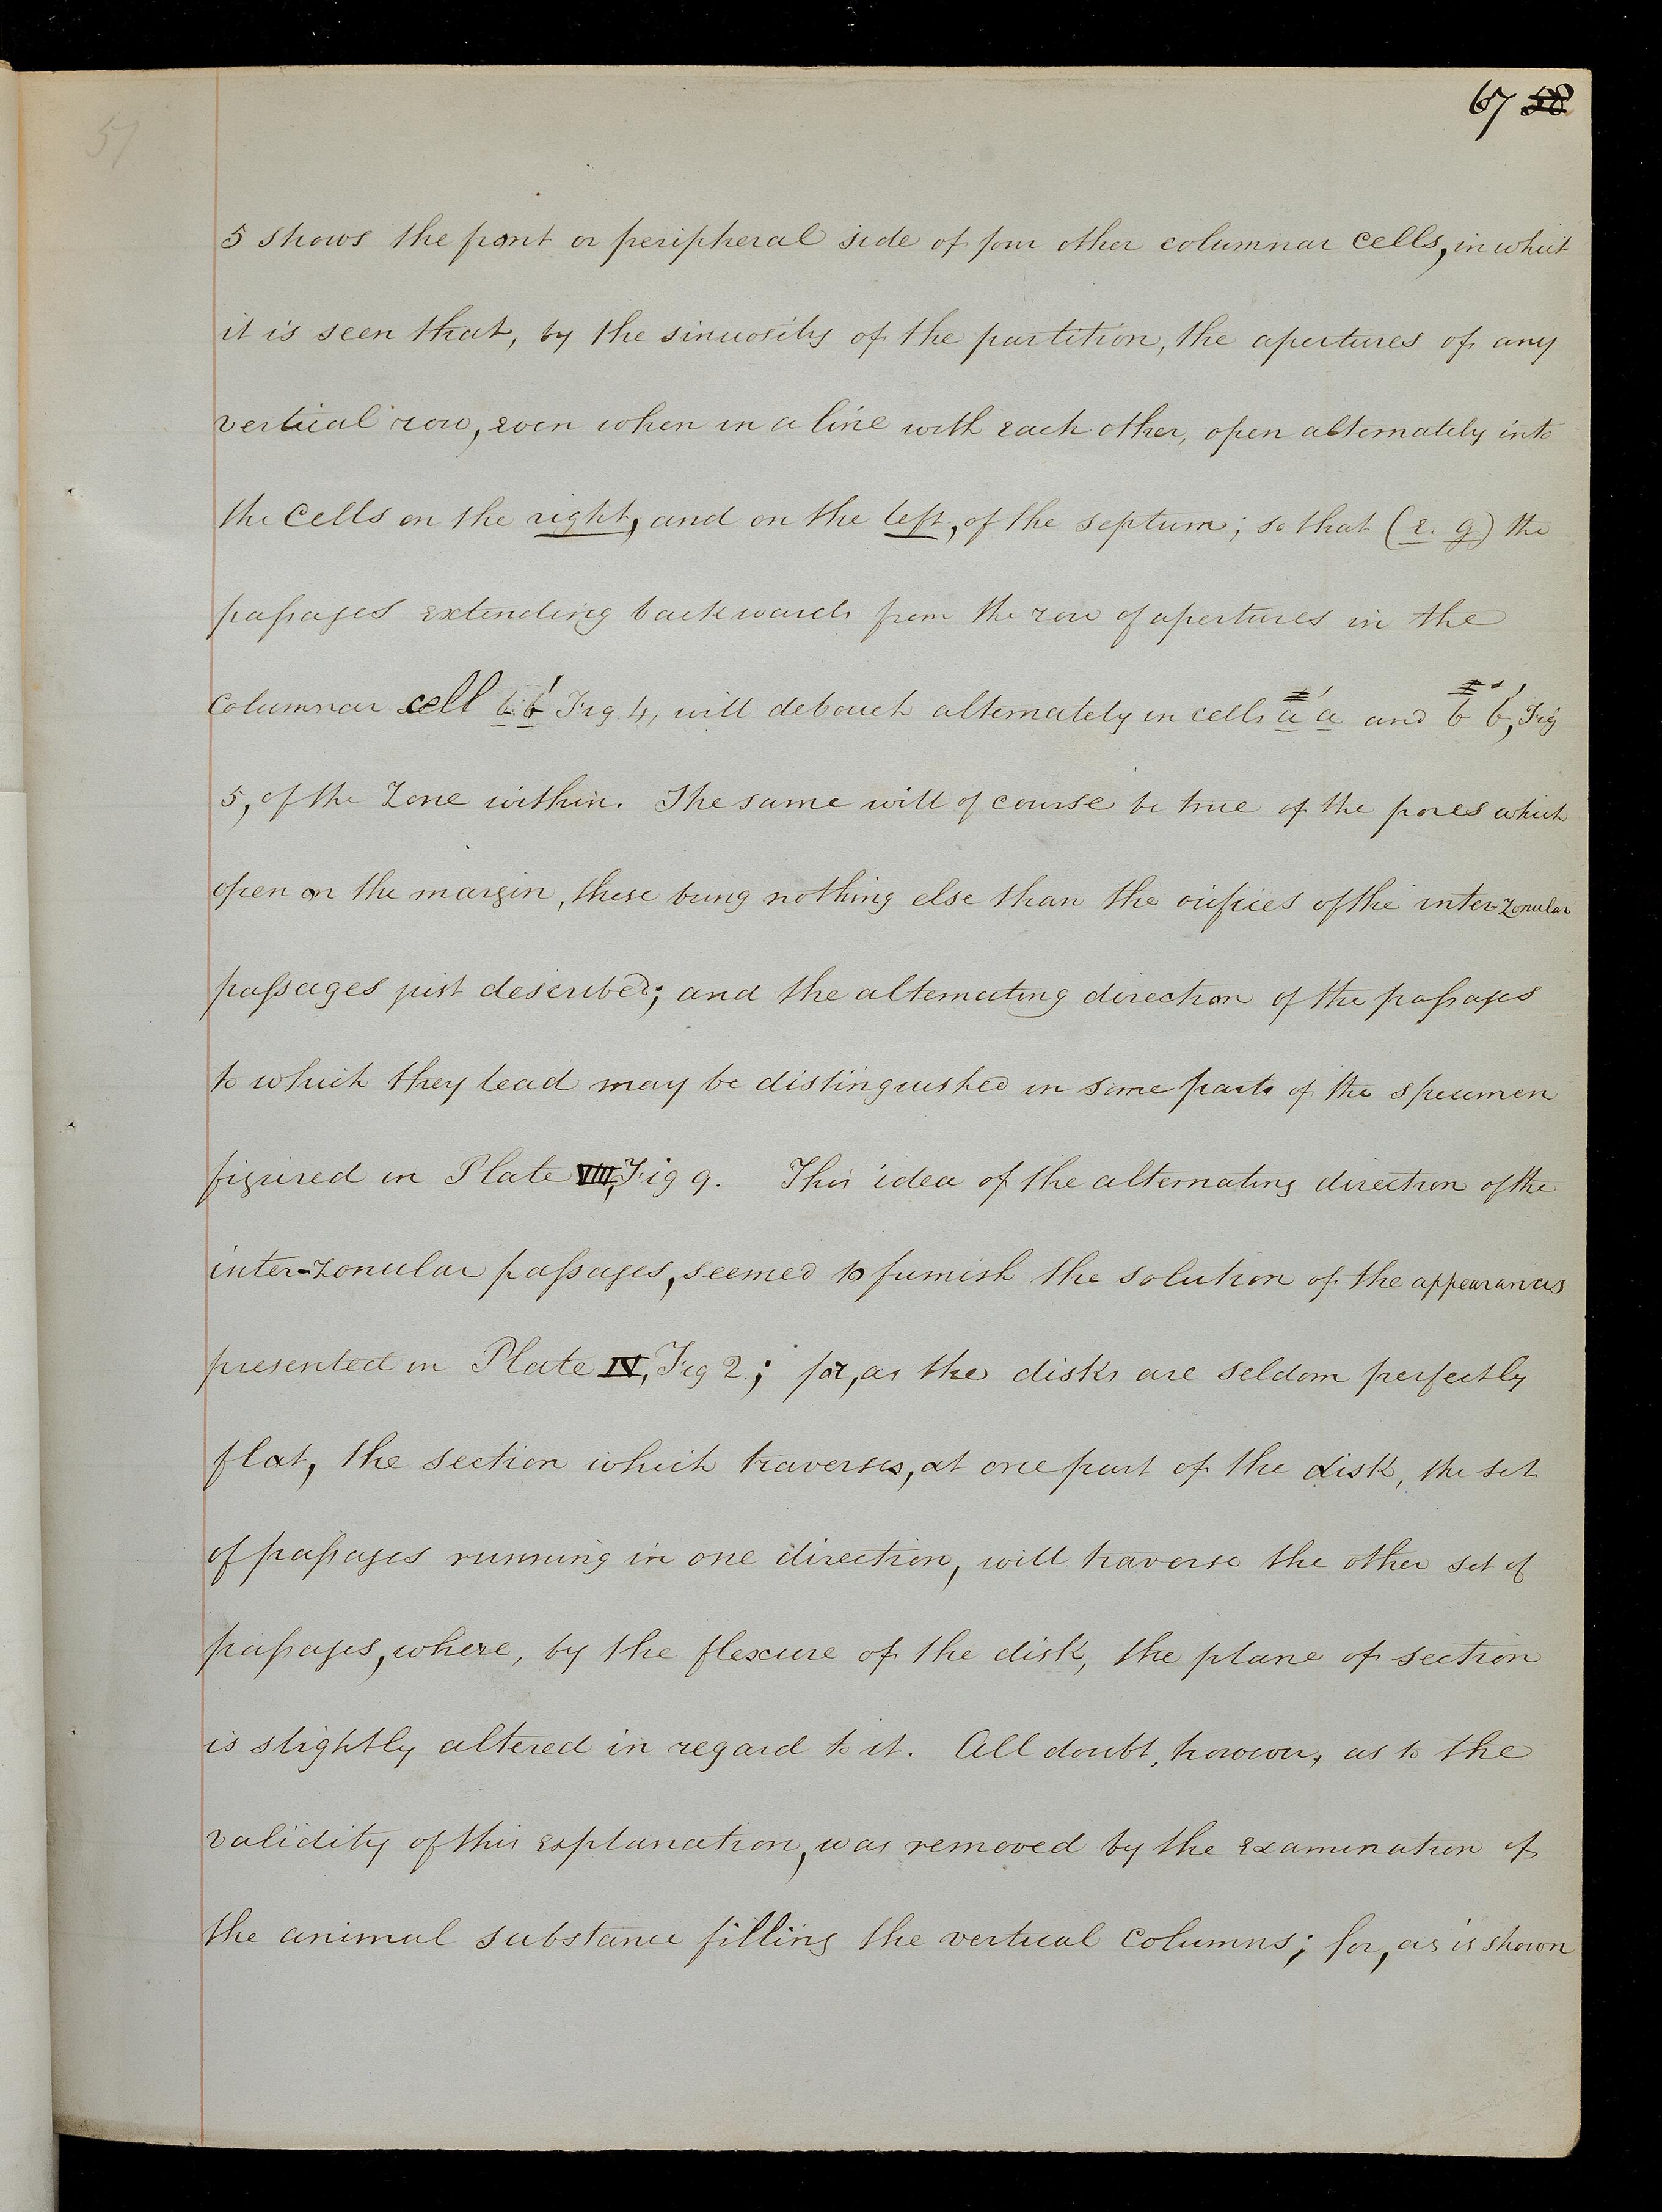 67 58
57
5 shows the front or peripheral side of four other columnar cells, in which
it is seen that, by the sinuosity of the partition, the apertures of any
vertical row, even when in a line with each other, open alternately into
the cells on the right, and on the left, of the septum; so that (e. g) the
passages extending backwards from the row of apertures in the
columnar cell b b' Fig. 4, will debouch alternately in cells a' a and b b', Fig
5, of the Zone within. The same will of course be true of the pores which
open on the margin, these being nothing else than the orifices of the inter-zonular
passages just described; and the alternating direction of the passages
to which they lead may be distinguished in some parts of the specimen
figured in Plate VIII, Fig 9. This idea of the alternating direction of the
inter-zonular passages, seemed to furnish the solution of the appearances
presented in Plate IV, Fig 2; for, as the disks are seldom perfectly
flat, the section which traverses, at one part of the disk, the set
of passages running in one direction, will traverse the other set of
passages, where, by the flexure of the disk, the plane of section
is slightly altered in regard to it. All doubt, however, as to the
validity of this explanation, was removed by the examination of
the animal substance filling the vertical columns; for, as is shown